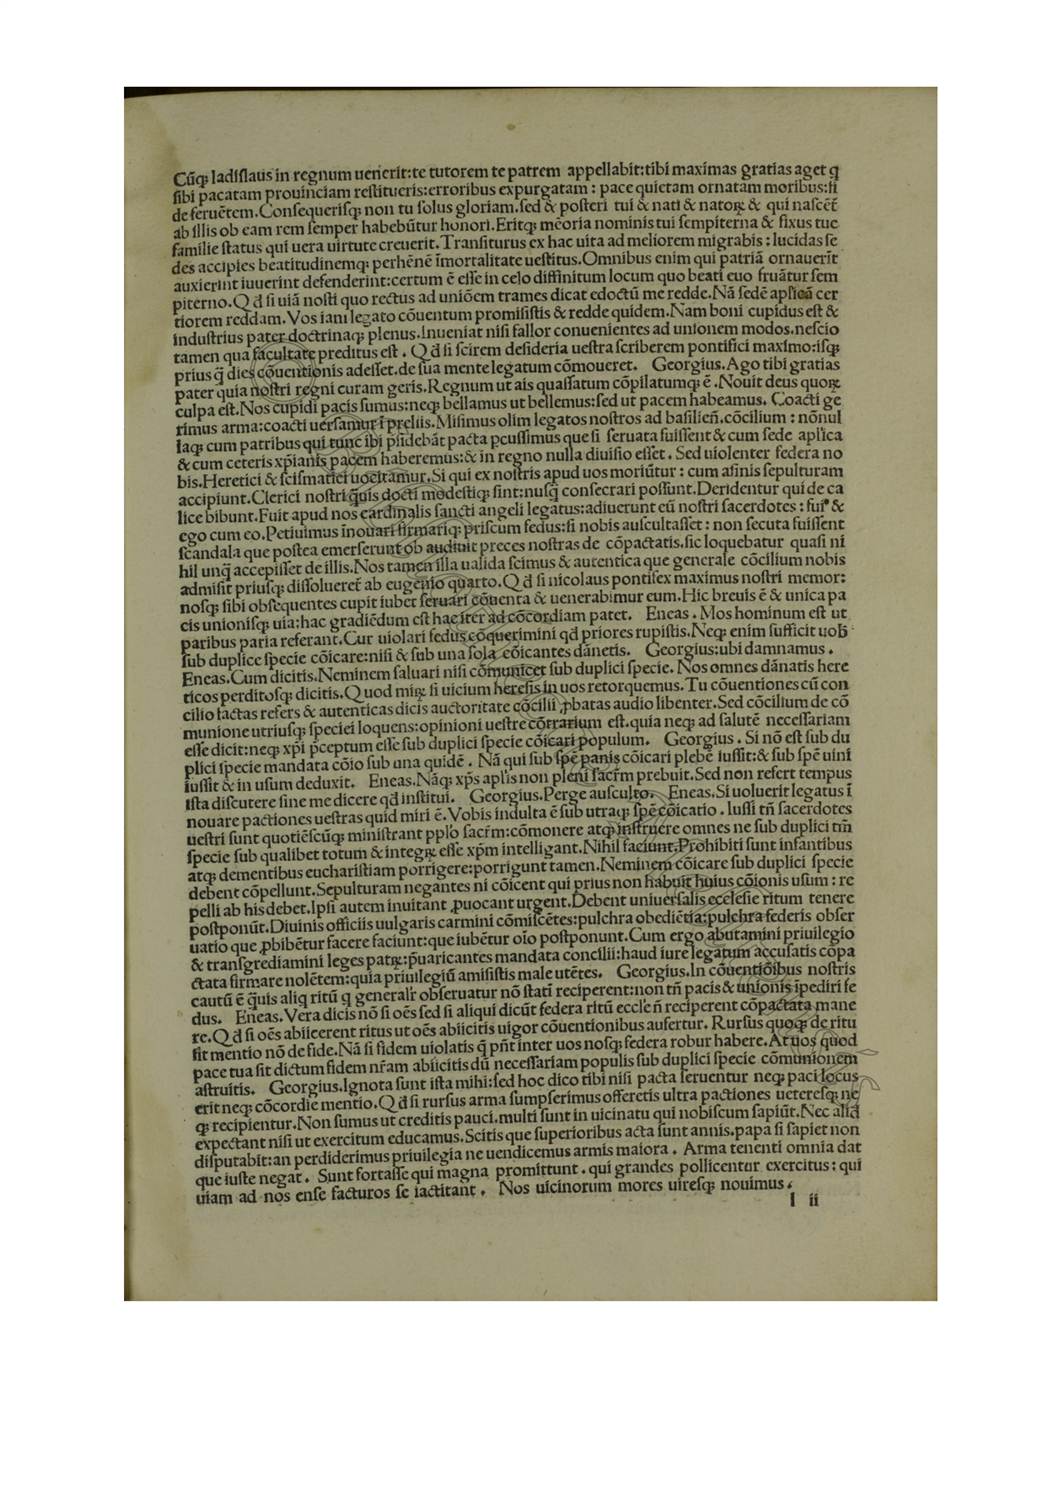 Cūq; ladiſlaus in regnum uenerit:te tutorem te patrem appellabit:tibi maximas gratias aget q
ſibi pacatam prouinciam reſtitueris:erroribus expurgatam : pace quietam ornatam moribus:fi
de feruētem.Conſequeriſq; non tu ſolus gloriam.ſed & poſteri tui & nati & natoꝝ & qui naſcēt̄
ab illis ob eam rem ſemper habebūtur honori.Eritq; mēoria nominis tui ſempiterna & fixus tue
familie ſtatus qui uera uirtute creuerit.Tranſiturus ex hac uita ad meliorem migrabis : lucidas ſe
des accipies beatitudinemq; perhēnē īmortalitate ueſtitus.Omnibus enim qui patriā ornauerīt
auxierint iuuerint defenderint:certum ē eſſe in celo diffinitum locum quo beati euo fruātur ſem
piterno.Q d̄ ſi uiā noſti quo rectus ad uniōem trames dicat edoctū me redde.Nā ſedē apl̄icā cer
tiorem reddam.Vos iam legato cōuentum promiſiſtis & redde quidem.Nam boni cupidus eſt &
induſtrius pater doctrinaq; plenus.Inueniat niſi fallor conuenientes ad unionem modos.neſcio
tamen qua facultate preditus eſt . Q d̄ ſi ſcirem deſideria ueſtra ſcriberem pontifici maximo:iſq;
prius q̄ dies cōuentionis adeſſet.de ſua mente legatum cōmoueret. Georgius.Ago tibi gratias
pater quia noſtri regni curam geris.Regnum ut ais quaſſatum cōpilatumq; ē .Nouit deus quoꝝ
culpa eſt.Nos cupidi pacis ſumus:neq; bellamus ut bellemus:ſed ut pacem habeamus. Coacti ge
rimus arma:coacti uerſamur ī preliis.Miſimus olim legatos noſtros ad baſilien̄.cōcilium : nōnul
laq; cum patribus qui tunc ibi p̄ſidebāt pacta pcuſſimus que ſi ſeruata fuiſſent & cum ſede apl̄ica
& cum ceteris xp̄ianis pacem haberemus:& in regno nulla diuiſio eſſet . Sed uiolenter federa no
bis.Heretici & ſciſmatici uocitamur.Si qui ex noſtris apud uos moriūtur : cum aſinis ſepulturam
accipiunt.Clerici noſtri q̄uis docti modeſtiq; ſint:nuſq̄ conſecrari poſſunt.Deridentur qui de ca
lice bibunt.Fuit apud nos cardinalis ſancti angeli legatus:adiuerunt eū noſtri ſacerdotes : fui & 
ego cum eo.Petiuimus īnouari firmariq; priſcum fedus:ſi nobis auſcultaſſet : non ſecuta fuiſſent
ſcandala que poſtea emerſerunt ob audiuit preces noſtras de cōpactatis.ſic loquebatur quaſi ni
hil unq̄ accepiſſet de illis.Nos tamen illa ualida ſcimus & autentica que generale cōcilium nobis
admiſit priuſq; diſſolueret̄ ab eugenio quarto.Q d̄ ſi nicolaus pontifex maximus noſtri memor:
noſq; ſibi obſequentes cupit iubet ſeruari cōuenta & uenerabimur eum.Hic breuis ē & unica pa
cis unioniſq; uia:hac gradiēdum eſt hac iter ad cōcordiam patet. Eneas . Mos hominum eſt ut
paribus paria referant.Cur uiolari fedus cōquerimini qd̄ priores rupiſtis.Neq; enim ſufficit uob̄
ſub duplice ſpecie cōicare:niſi & ſub una ſola cōicantes dānetis. Georgius:ubi damnamus .
Eneas. Cum dicitis.Neminem ſaluari niſi cōmunicet ſub duplici ſpecie. Nos omnes dānatis here
ticos perditoſq; dicitis.Q uod miꝝ ſi uicium hereſis in uos retorquemus.Tu cōuentiones cū con
cilio factas refers & autenticas dicis auctoritate cōcilii ꝓbatas audio libenter. Sed cōcilium de cō
munione utriuſq; ſpeciei loquens:opinioni ueſtre cōtrarium eſt.quia neq; ad ſalutē neceſſariam
eſſe dicit:neq; xp̄i p̄ceptum eſſe ſub duplici ſpecie cōicari populum. Georgius . Si nō eſt ſub du
plici ſpecie mandata cōio ſub una quidē . Nā qui ſub ſpē panis cōicari plebē iuſſit:& ſub ſpē uini
iuſſit & in uſum deduxit. Eneas.Nāq; xp̄s apl̄is non pleni ſacr̄m prebuit.Sed non refert tempus
iſta diſcutere ſine me dicere qd̄ inſtitui. Georgius.Perge auſculto. Eneas.Si uoluerit legatus ī
nouare pactiones ueſtras quid miri ē.Vobis indulta ē ſub utraq; ſpē cōicatio . Iuſſi tn̄ ſacerdotes
ueſtri ſunt quotiēſcūq; miniſtrant pplo ſacr̄m:cōmonere atq; inſtruere omnes ne ſub duplici tm̄
ſpecie ſub qualibet totum & integꝝ eſſe xp̄m intelligant.Nihil faciunt.Prohibiti ſunt infantibus
atq; dementibus euchariſtiam porrigere:porrigunt tamen.Neminem cōicare ſub duplici ſpecie
debent cōpellunt.Sepulturam negantes ni cōicent qui prius non habuit huius cōionis uſum : re
pelli ab his debet.Ipſi autem inuitant ꝓuocant urgent.Debent uniuerſalis eccleſie ritum tenere
poſtponūt.Diuinis officiis uulgaris carmini cōmiſcētes:pulchra obediētia:pulchra federis obſer
uatio que ꝓbibētur facere faciunt:que iubētur oīo poſtponunt.Cum ergo abutamini priuilegio
& tranſgrediamini leges patꝝ:p̄uaricantes mandata concilii:haud iure legatum accuſatis cōpa
ctata firmare nolētem:quia priuilegiū amiſiſtis male utētes. Georgius.In cōuentiōibus noſtris
cautū ē q̄uis aliq ritū q generalr̄ obſeruatur nō ſtatī reciperent:non tn̄ pacis & unionis īpediri fe
dus. Eneas.Vera dicis nō ſi oēs ſed ſi aliqui dicūt federa ritū eccle n̄ reciperent cōpactata mane
re.Q d̄ ſi oēs abiicerent ritus ut oēs abiicitis uigor cōuentionibus aufertur. Rurſus quoq; de ritu
fit mentio nō de fide.Nā ſi fidem uiolatis q̄ pn̄t inter uos noſq; federa robur habere.At uos quod
pace tua ſit dictum fidem nr̄am abiicitis dū neceſſariam populis ſub duplici ſpecie cōmunionem
aſtruitis. Georgius.Ignota ſunt iſta mihi:ſed hoc dico tibi niſi pacta ſeruentur neq; paci locus
erit neq; cōcordie mentio.Q d̄ ſi rurſus arma ſumpſerimus offeretis ultra pactiones uetereſq; ne
q; recipientur.Non ſumus ut creditis pauci.multi ſunt in uicinatu qui nobiſcum ſapiūt.Nec aliđ
expectant niſi ut exercitum educamus.Scitis que ſuperioribus acta ſunt annis.papa ſi ſapiet non
diſputabit:an perdiderimus priuilegia ne uendicemus armis maiora . Arma tenenti omnia dat
que iuſte negat . Sunt fortaſſe qui magna promittunt . qui grandes pollicentur exercitus : qui
uiam ad nos enſe facturos ſe iactitant . Nos uicinorum mores uireſq; nouimus.
l ii